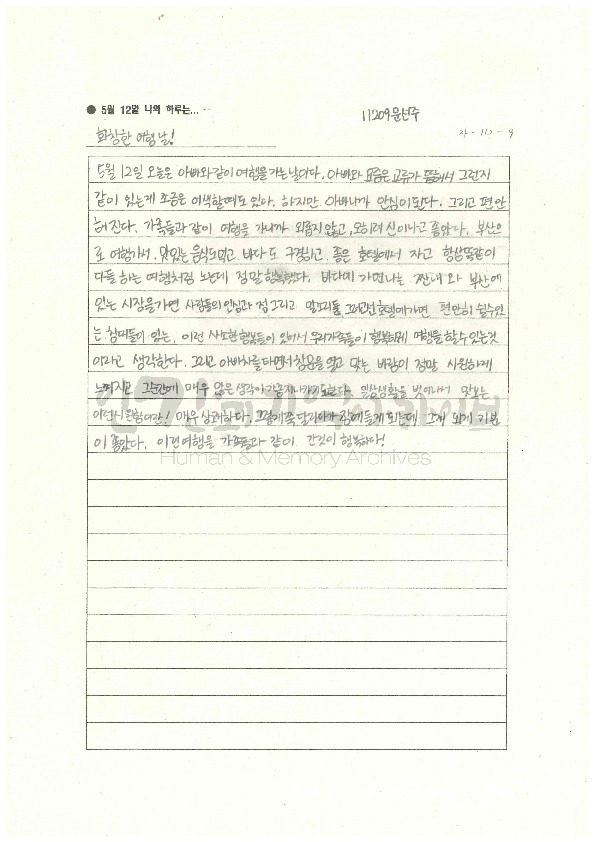 ● 5월 12일 나의 하루는...
11209문선주
화창한 여행날!
5월 12일 오늘은 아빠와같이 여행을 가는날이다. 아빠와 요즘은 교류가 뜸해서 그런지
같이 있는게 조금은 어색할때도 있다. 하지만 아빠니까 안심이된다. 그리고 편안
해진다. 가족들과 같이 여행을 가니까 외롭지않고, 오히려 신이나고 좋았다. 부산으
로 여행가서, 맛있는 음식도먹고, 바다도 구경하고, 좋은 호텔에서 자고 항상똑같이
다들 하는 여행처럼 노는데 정말 행복했다. 바다에 가면나는 짠내와 부산에
있는 시장을가면 사람들의 인심과 정 그리고 말소리들, 그리고 호텔에가면 편안히 쉴수있
는 침대들이 있는, 이런 사소한 행복들이 있어서 우리가족들이 행복하게 여행을 할수있는것
이라고 생각한다. 그리고 아빠차를타면서창문을 열고 맞는 바람이 정말 시원하게
느껴지고 그순간에 매우 많은 생각이 일상생활을 벗어나서 맛보는
이런시원함이란! 매우 상쾌하다. 그렇게쭉 달리다가 잠에들게 되는데 그게 되게 기분
이 좋았다. 이런여행을 가족들과 같이 간것이 행복하다!
인간과기억아카이브
Human & Memory Archives